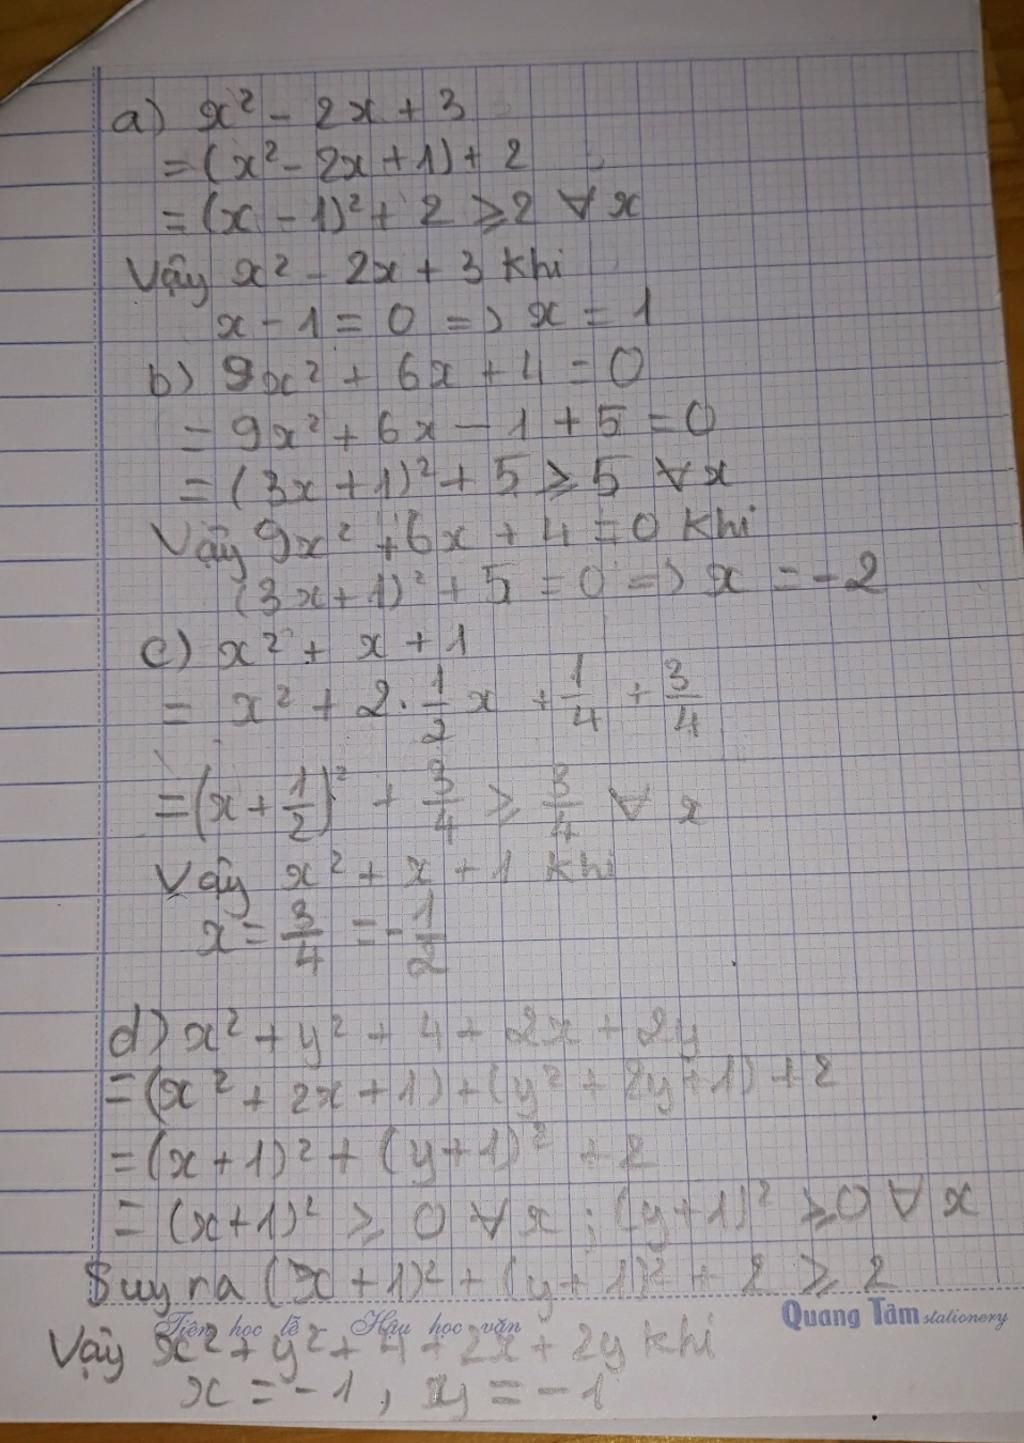 a) x² - 2x + 3
= (x² - 2x + 1) + 2
= (x - 1)² + 2 ≥ 2 ∀ x
Vậy x² - 2x + 3 khi
x - 1 = 0 => x = 1
b) 9x² + 6x + 4 = 0
= 9x² + 6x - 1 + 5 = 0
= (3x + 1)² + 5 ≥ 5 ∀ x
Vậy 9x² + 6x + 4 = 0 khi
(3x + 1)² + 5 = 0 => x = -2
c) x² + x + 1
= x² + 2 . 1/2 x + 1/4 + 3/4
= (x + 1/2)² + 3/4 ≥ 3/4 ∀ x
Vậy x² + x + 1 khi
x = 3/4 = - 1/2
d) x² + y² + 4 + 2x + 2y
= (x² + 2x + 1) + (y² + 2y + 1) + 2
= (x + 1)² + (y + 1)² + 2
= (x + 1)² ≥ 0 ∀ x ; (y + 1)² ≥ 0 ∀ x
Suy ra (x + 1)² + (y + 1)² + 2 ≥ 2
Tiên học lễ - Hậu học văn
Quang Tâm stationery
Vậy x² + y² + 4 + 2x + 2y khi
x = -1, y = -1